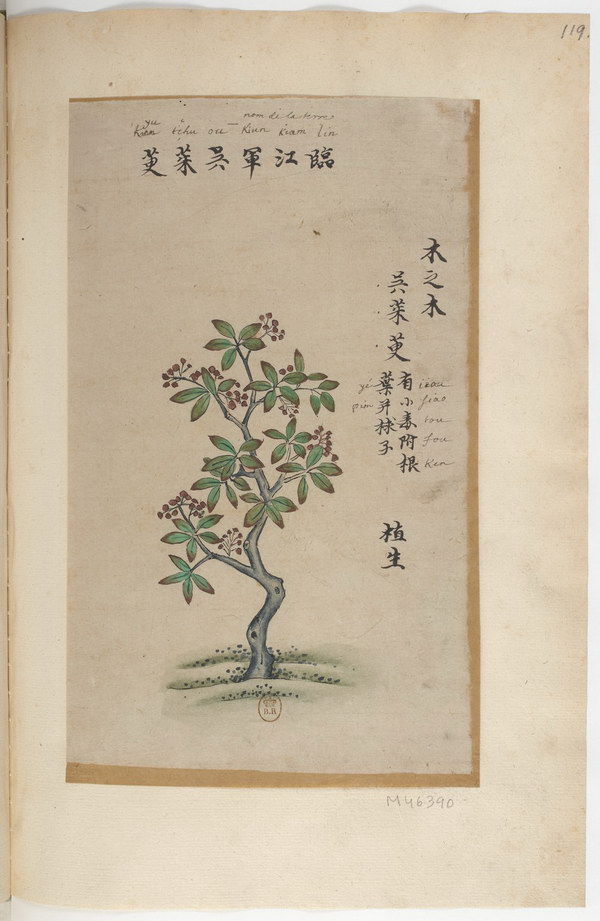 119.
nom de la terre
yu tchu ou kiun kiam lin
臨江軍呉茱萸
木之木
呉茱萸
有小毒附根
葉并梂子
植生
siao
tou
fou
ken
yé
pim
B.R
M46390